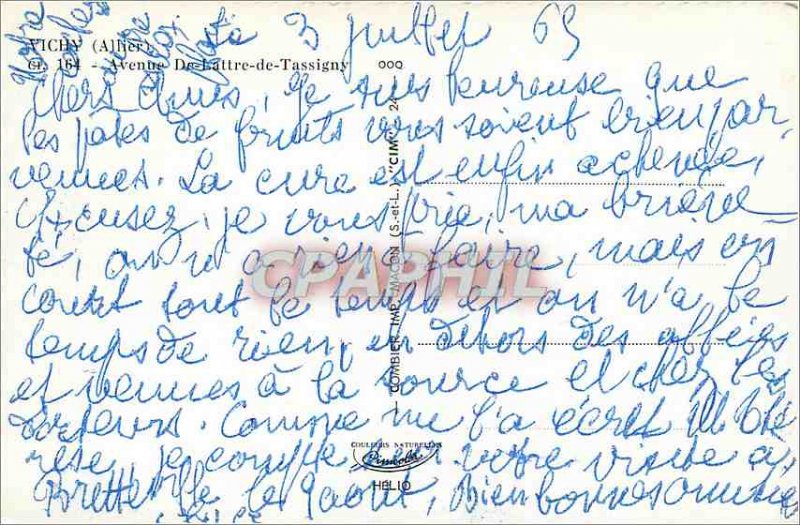 Le 3 juillet 63
VICHY (Allier)
cr. 164 - Avenue De-Lattre-de-Tassigny
Chers Amis, je suis heureuse que
les pâtes de fruits vous soient bien par-
venues. La cure est enfin achevée,
Excusez, je vous prie, ma brieve-
té, on n'a rien à faire, mais on
court tout le temps et on n'a le
temps de rien, en dehors des allées
et venues à la source et chez les
docteurs. Comme me l'a écrit Me Thé
rèse, je compte sur votre visite à
Bretteville le 9 août, Bien bonnes
COMBIER IMP. MACON (S.-et-L.) "CIM"
COULEURS NATURELLES
HELIO
CPAPHIL